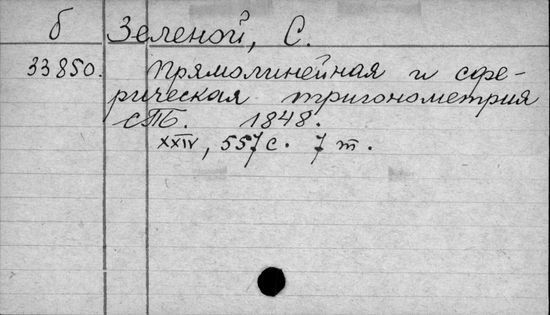 б Зеленой, С.
33850. Прямолинейная и сфе-
рическая тригонометрия
СПб. 1848.
XXIV, 557 с. 7 т.